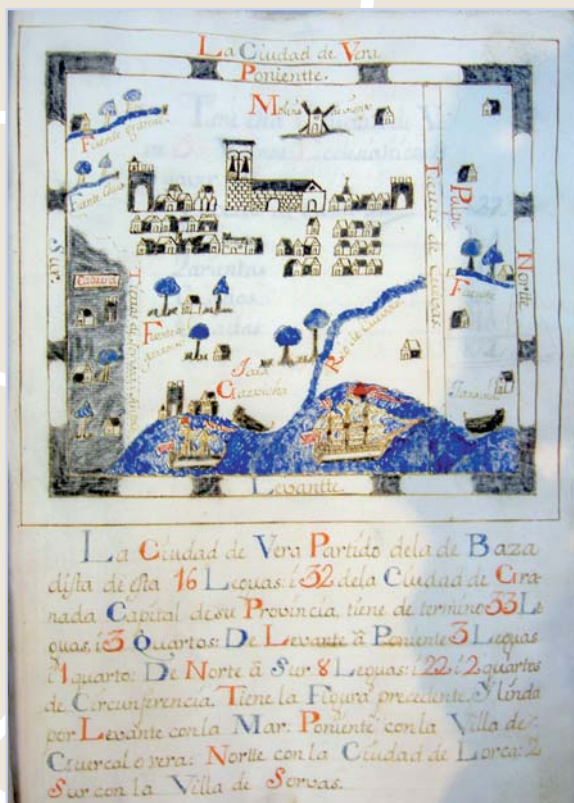 La Ciudad de Vera
Ponientte.
Molino de viento
Fuente grande
Fuente chica
Sur.
Norte
Pulpi
Teruis de Cuevas
Fuente
Cabuera
Fuente
Rio de Cuevas
Garrucha
Levantte.
La Ciudad de Vera Partido dela de Baza
dista de esta 16 Leguas: i 32 dela Ciudad de Gra-
nada Capital de su Provincia, tiene de termino 33 Le
guas, i 3 Quartos: De Levante â Poniente 3 Leguas
i 1 quarto: De Norte â Sur 8 Leguas: i 22 i 2 quartos
de Circunferencia. Tiene la Figura precedente. I linda
por Levante con la Mar: Poniente con la Villa de
Guercal overa: Nortte con la Ciudad de Lorca: 2
Sur con la Villa de Sorvas.